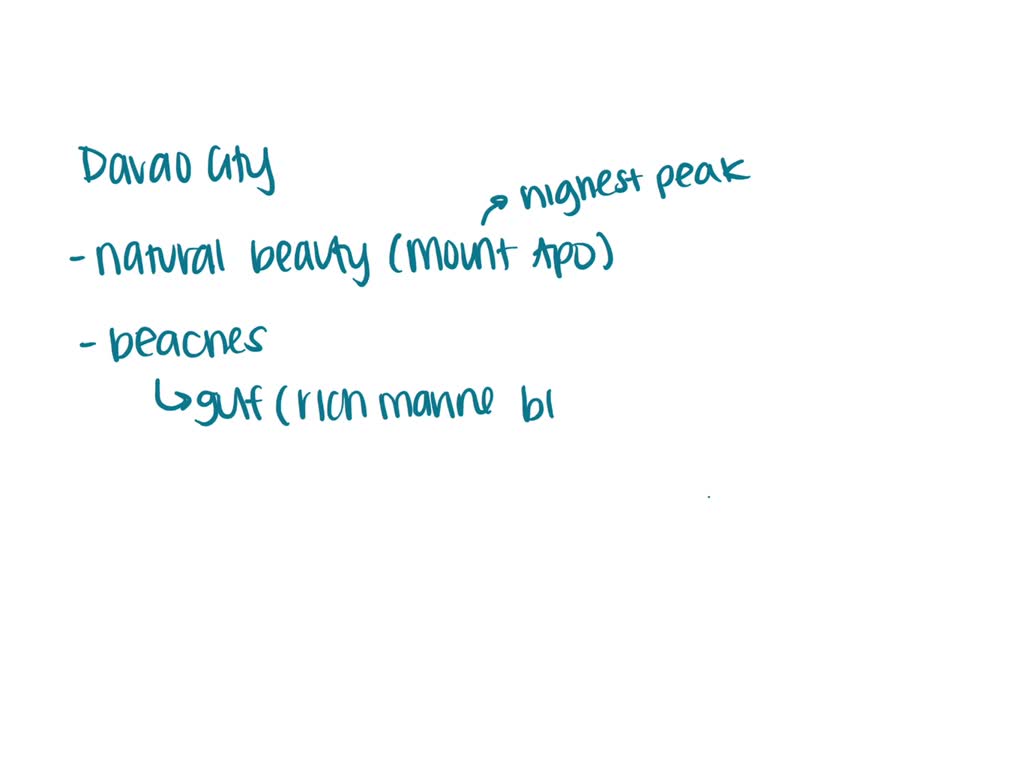 Davao City
highest peak
- natural beauty (Mount Apo)
- beaches
↳ gulf (rich marine bi